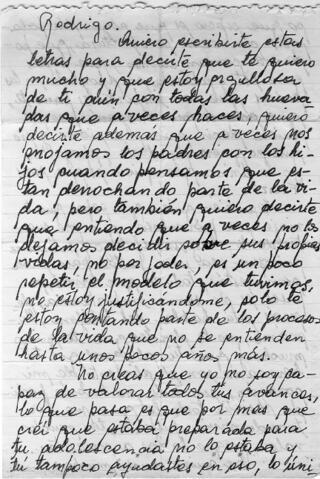 Rodrigo.
Quiero escribirte estas
letras para decirte que te quiero
mucho y que estoy orgullosa
de ti, aun con todas las hueva
das que a veces haces, quiero
decirte además que a veces nos
enojamos los padres con los hi-
jos cuando pensamos que es-
tan derrochando parte de la vi-
da, pero también quiero decirte
que entiendo que a veces no los
dejamos decidir sobre sus propias
vidas, no por joder, es un poco
repetir el modelo que tuvimos,
no estoy justificándome, solo te
estoy contando parte de los procesos
de la vida que no se entienden
hasta unos pocos años más.
No creas que yo no soy ca-
paz de valorar todos tus avances,
lo que pasa es que por más que
creí que estaba preparada para
tu adolescencia no lo estaba y
tú tampoco ayudastes en eso, lo úni